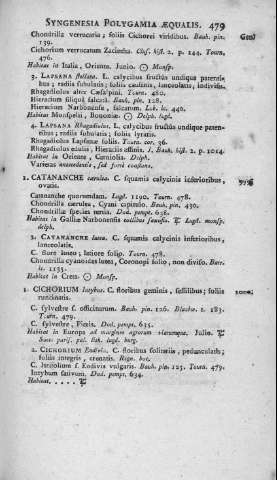 SYNGENESIA POLYGAMIA ÆQUALIS. 479
Chondrilla verrucaria; foliis Cichorei viridibus. Bauh. pin.
139.
Cichorium verrucatum Zacintha. Clus. hist. 2. p. 144. Tourn.
476.
Habitat in Italia, Oriente. Junio. ☉ Monsp.
3. LAPSANA stellata. L. calycibus fructûs undique patenti-
bus; radiis subulatis; foliis caulinis, lanceolatis, indivisis.
Rhagadiolus alter Cæsalpini. Tourn. 480.
Hieracium siliquâ falcatâ. Bauh. pin. 128.
Hieracium Narbonense, falcatum. Lob. ic. 240.
Habitat Monspelii, Bononiæ. ☉ Lugd.
4. LAPSANA Rhagadiolus. L. calycibus fructûs undique paten-
tibus; radiis subulatis; foliis lyratis.
Rhagadiolus Lapsanæ foliis. Tourn. cor. 36.
Rhagadiolus edulis, Hieraciis affinis. J. Bauh. hist. 2. p. 1014.
Habitat in Oriente, Carniolia. Delph.
Varietas antecedentis, sed ferè constans.
1. CATANANCHE cærulea. C. squamis calycinis inferioribus,
ovatis.
Catananche quorumdam. Lugd. 1190. Tourn. 478.
Chondrilla cærulea, Cyani capitulo. Bauh. pin. 130.
Chondrillæ species tertia. Dod. pempt. 638.
Habitat in Galliæ Narbonensis collibus saxosis. Lugd. monsp.
delph.
2. CATANANCHE lutea. C. squamis calycinis inferioribus,
lanceolatis.
C. flore luteo; latiore folio. Tourn. 478.
Chondrilla cyanoides lutea, Coronopi folio, non diviso. Barr.
ic. 1135.
Habitat in Creta. ☉ Monsp.
1. CICHORIUM Intybus. C. floribus geminis, sessilibus; foliis
runcinatis.
C. sylvestre s. officinarum. Bauh. pin. 126. Blackw. t. 183.
Tourn. 479.
C. sylvestre, Picris. Dod. pempt. 635.
Habitat in Europa ad margines agrorum viarumque. Julio.
Suec. paris. pal. lith. lugd. burg.
2. CICHORIUM Endivia. C. floribus solitariis, pedunculatis;
foliis integris, crenatis. Rign. bot.
C. latifolium s. Endivia vulgaris. Bauh. pin. 125. Tourn. 479.
Intybum sativum. Dod. pempt. 634.
Habitat . . . . .